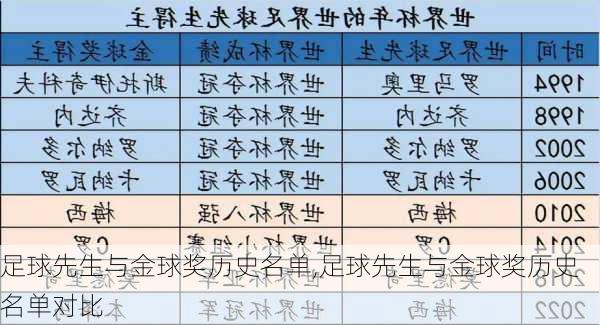 世界杯年的世界足球先生得主
时间 世界足球先生 世界杯成绩 金球奖得主
1994 罗马里奥 世界杯夺冠 斯托伊奇科夫
1998 齐达内 世界杯夺冠 齐达内
2002 罗纳尔多 世界杯夺冠 罗纳尔多
2006 卡纳瓦罗 世界杯夺冠 卡纳瓦罗
2010 梅西 世界杯八强 梅西
2014 C罗 世界杯小组赛 C罗
足球先生与金球奖历史名单,足球先生与金球奖历史
2018
名单对比
2022 梅西 世界杯冠军 本